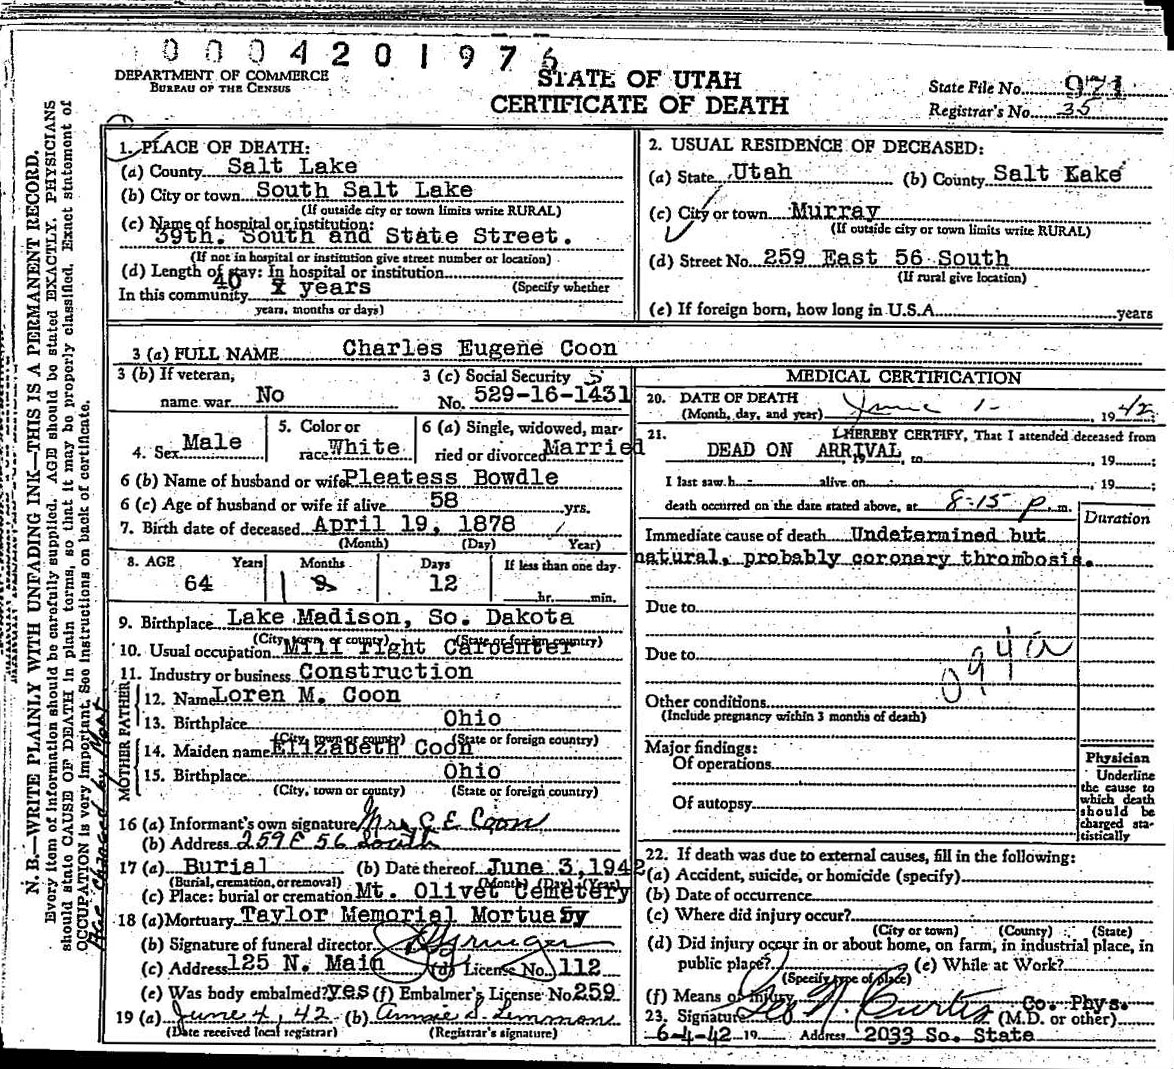 0004201976
DEPARTMENT OF COMMERCE
BUREAU OF THE CENSUS
STATE OF UTAH
CERTIFICATE OF DEATH
State File No. 971
Registrar's No. 35
N. B.—WRITE PLAINLY WITH UNFADING INK—THIS IS A PERMANENT RECORD.
Every item of information should be carefully supplied. AGE should be stated EXACTLY. PHYSICIANS
should state CAUSE OF DEATH in plain terms, so that it may be properly classified. Exact statement of
OCCUPATION is very important. See instructions on back of certificate.
1. PLACE OF DEATH:
(a) County Salt Lake
(b) City or town South Salt Lake
(If outside city or town limits write RURAL)
(c) Name of hospital or institution:
39th. South and State Street.
(If not in hospital or institution give street number or location)
(d) Length of stay: In hospital or institution
(Specify whether
In this community 40 years
years, months or days)
2. USUAL RESIDENCE OF DECEASED:
(a) State Utah (b) County Salt Kake
(c) City or town Murray
(If outside city or town limits write RURAL)
(d) Street No. 259 East 56 South
(If rural give location)
(e) If foreign born, how long in U.S.A. years
3 (a) FULL NAME Charles Eugene Coon
3 (b) If veteran,
name war No
3 (c) Social Security
No. 529-16-1431
4. Sex Male
5. Color or
race White
6 (a) Single, widowed, mar-
ried or divorced Married
6 (b) Name of husband or wife Pleatess Bowdle
6 (c) Age of husband or wife if alive 58 yrs.
7. Birth date of deceased April 19, 1878
(Month) (Day) Year)
8. AGE Years Months Days If less than one day
64 9 12 hr. min.
9. Birthplace Lake Madison, So. Dakota
(City, town, or county) (State or foreign country)
10. Usual occupation Mill right Carpenter
11. Industry or business Construction
FATHER
12. Name Loren M. Coon
13. Birthplace Ohio
(City, town or county) (State or foreign country)
MOTHER
14. Maiden name Elizabeth Coon
15. Birthplace Ohio
(City, town or county) (State or foreign country)
16 (a) Informant's own signature Mrs C. E. Coon
(b) Address 259 E 56 South
17 (a) Burial (b) Date thereof June 3, 1942
(Burial, cremation, or removal) (Month) (Day) (Year)
(c) Place: burial or cremation Mt. Olivet Cemetery
18 (a) Mortuary Taylor Memorial Mortuary
(b) Signature of funeral director
(c) Address 125 N. Main (d) License No. 112
(e) Was body embalmed? yes (f) Embalmer's License No 259
19 (a) June 4, 42 (b) Annie S. Lemmon
(Date received local registrar) (Registrar's signature)
MEDICAL CERTIFICATION
20. DATE OF DEATH
(Month, day, and year) June 1- 1942
21. I HEREBY CERTIFY, That I attended deceased from
DEAD ON ARRIVAL, 19 to , 19 ;
I last saw h alive on , 19 ;
death occurred on the date stated above, at 8-15 p. m.
Duration
Immediate cause of death Undetermined but
natural, probably coronary thrombosis.
Due to
Due to
094a
Other conditions
(Include pregnancy within 3 months of death)
Major findings:
Of operations
Of autopsy
Physician
Underline
the cause to
which death
should be
charged sta-
tistically
22. If death was due to external causes, fill in the following:
(a) Accident, suicide, or homicide (specify)
(b) Date of occurrence
(c) Where did injury occur?
(City or town) (County) (State)
(d) Did injury occur in or about home, on farm, in industrial place, in
public place? (e) While at Work?
(Specify type of place)
(f) Means of injury
Co. Phys.
23. Signature Leo N. Curtis (M.D. or other)
6-4-42 19 Address 2033 So. State